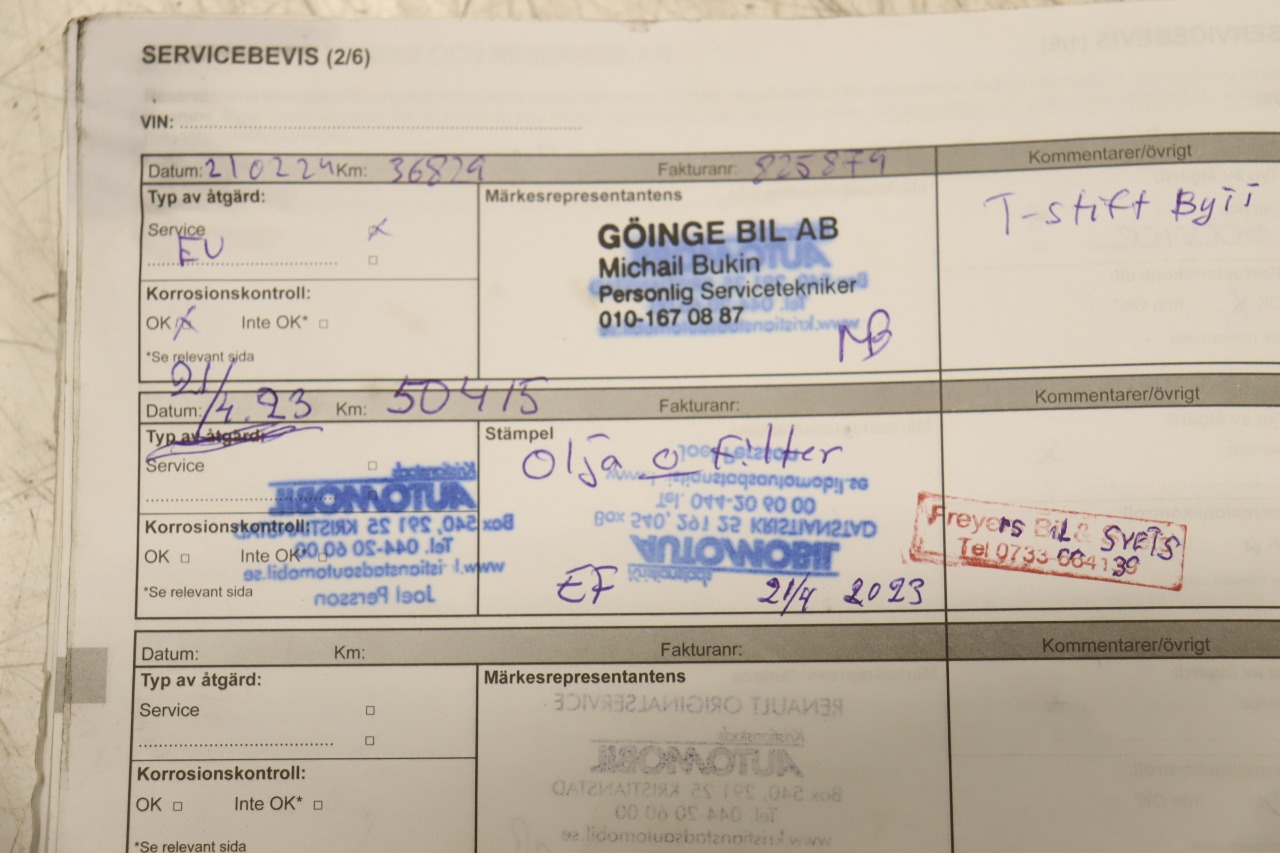 SERVICEBEVIS (2/6)
VIN:
Datum: 210224 Km: 36829 Fakturanr: 825879 Kommentarer/övrigt
Typ av åtgärd: Märkesrepresentantens
Service
EU
T-stift Bytt
GÖINGE BIL AB
Michail Bukin
Personlig Servicetekniker
010-167 08 87
MB
Korrosionskontroll:
OK Inte OK*
*Se relevant sida
Datum: 21/4.23 Km: 50415 Fakturanr: Kommentarer/övrigt
Typ av åtgärd: Stämpel
Service
Olja o Filter
Korrosionskontroll:
OK Inte OK*
*Se relevant sida
Joel Persson
www.kristianstadsautomobil.se
Tel. 044-20 60 00
Box 540, 291 25 KRISTIANSTAD
AUTOMOBIL
Kristianstads
Kristianstads
AUTOMOBIL
Box 540, 291 25 KRISTIANSTAD
Tel. 044-20 60 00
www.kristianstadsautomobil.se
Joel Persson
EF 21/4 2023
Freyers Bil & SVETS
Tel 0733-664139
Datum: Km: Fakturanr: Kommentarer/övrigt
Typ av åtgärd: Märkesrepresentantens
Service
Korrosionskontroll:
OK Inte OK*
*Se relevant sida
RENAULT ORIGINALSERVICE
Kristianstads
AUTOMOBIL
Box 540, 291 25 KRISTIANSTAD
Tel. 044-20 60 00
www.kristianstadsautomobil.se